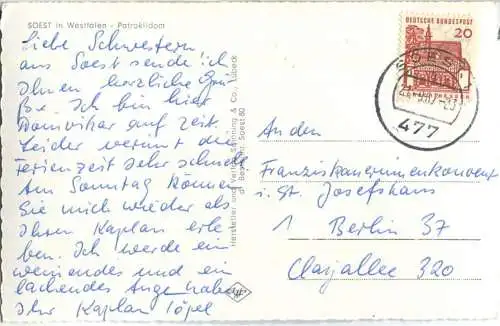 SOEST in Westfalen - Patroklidom
Liebe Schwestern
aus Soest sende ich
Ihnen herzliche Grü-
ße. Ich bin hier
Domvikar auf Zeit.
Leider verrinnt die
Ferienzeit sehr schnell
Am Sonntag können
Sie mich wieder als
Ihren Kaplan erle
ben. Ich werde ein
weinendes und ein
lachendes Auge haben
Ihr Kaplan Töpel
Hersteller und Verlag Schöning & Co., Lübeck
Best.-Nr. Soest 80
DEUTSCHE BUNDESPOST
20
SOEST
477
An den
Franziskanerinnenkonvent
i. St. Josefshaus
1 Berlin 37
Clayallee 320